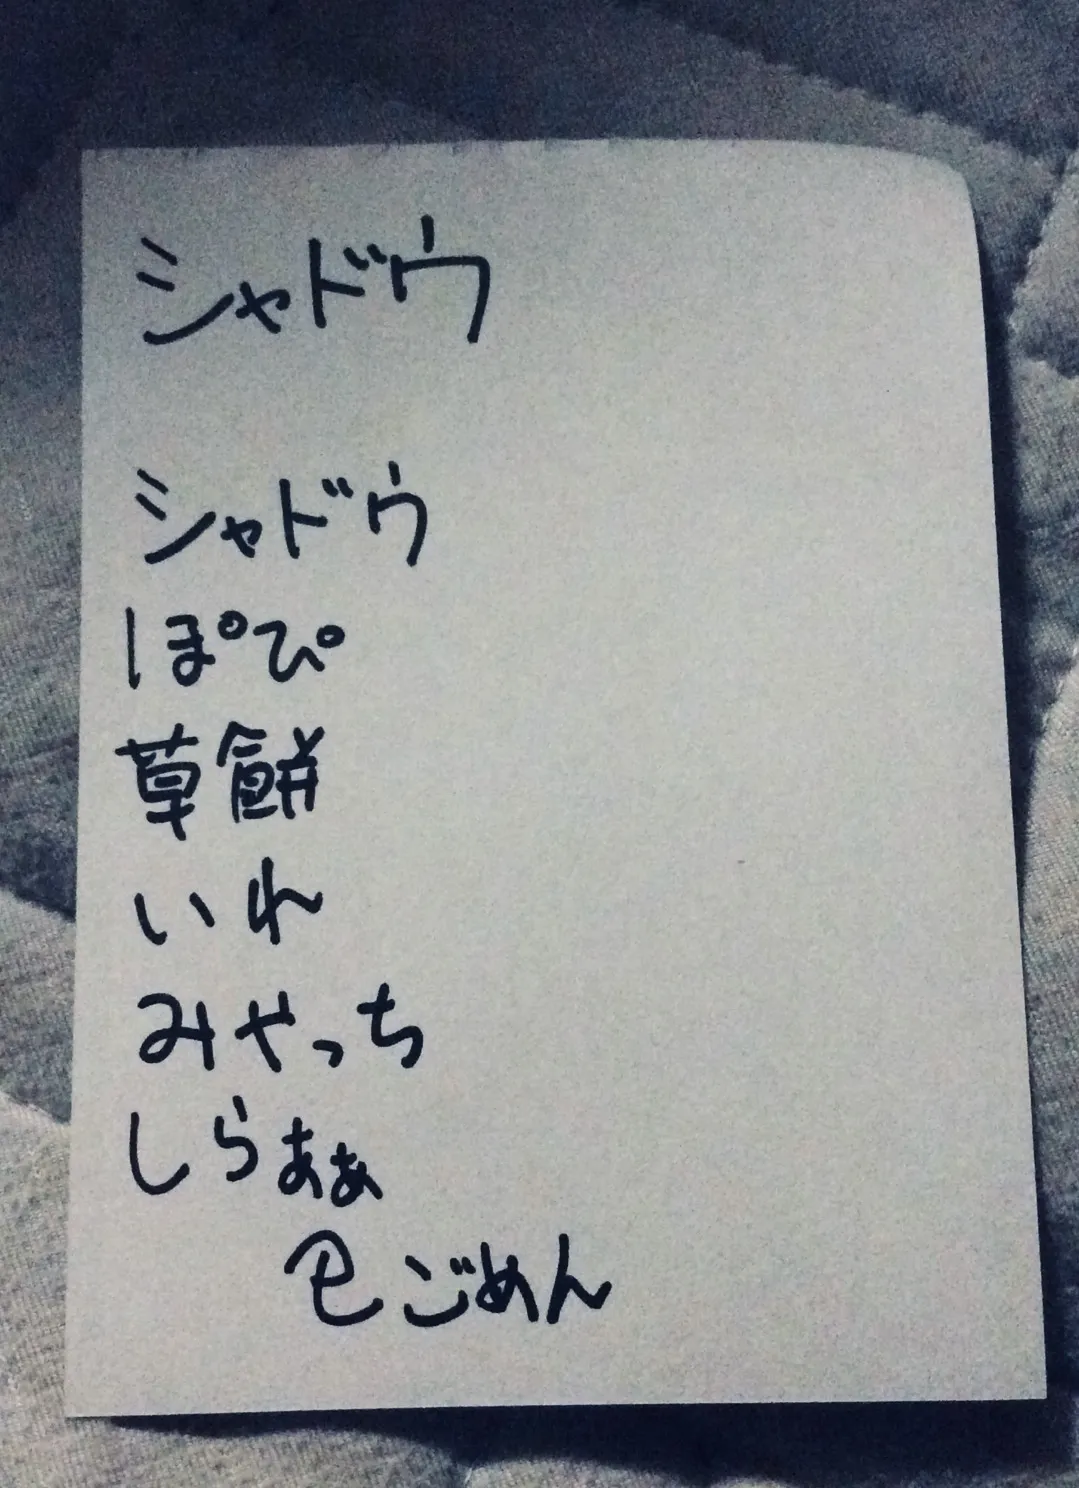 シャドウ
シャドウ
ぽぴ
草餅
いれ
みやっち
しらぁぁ
ごめん